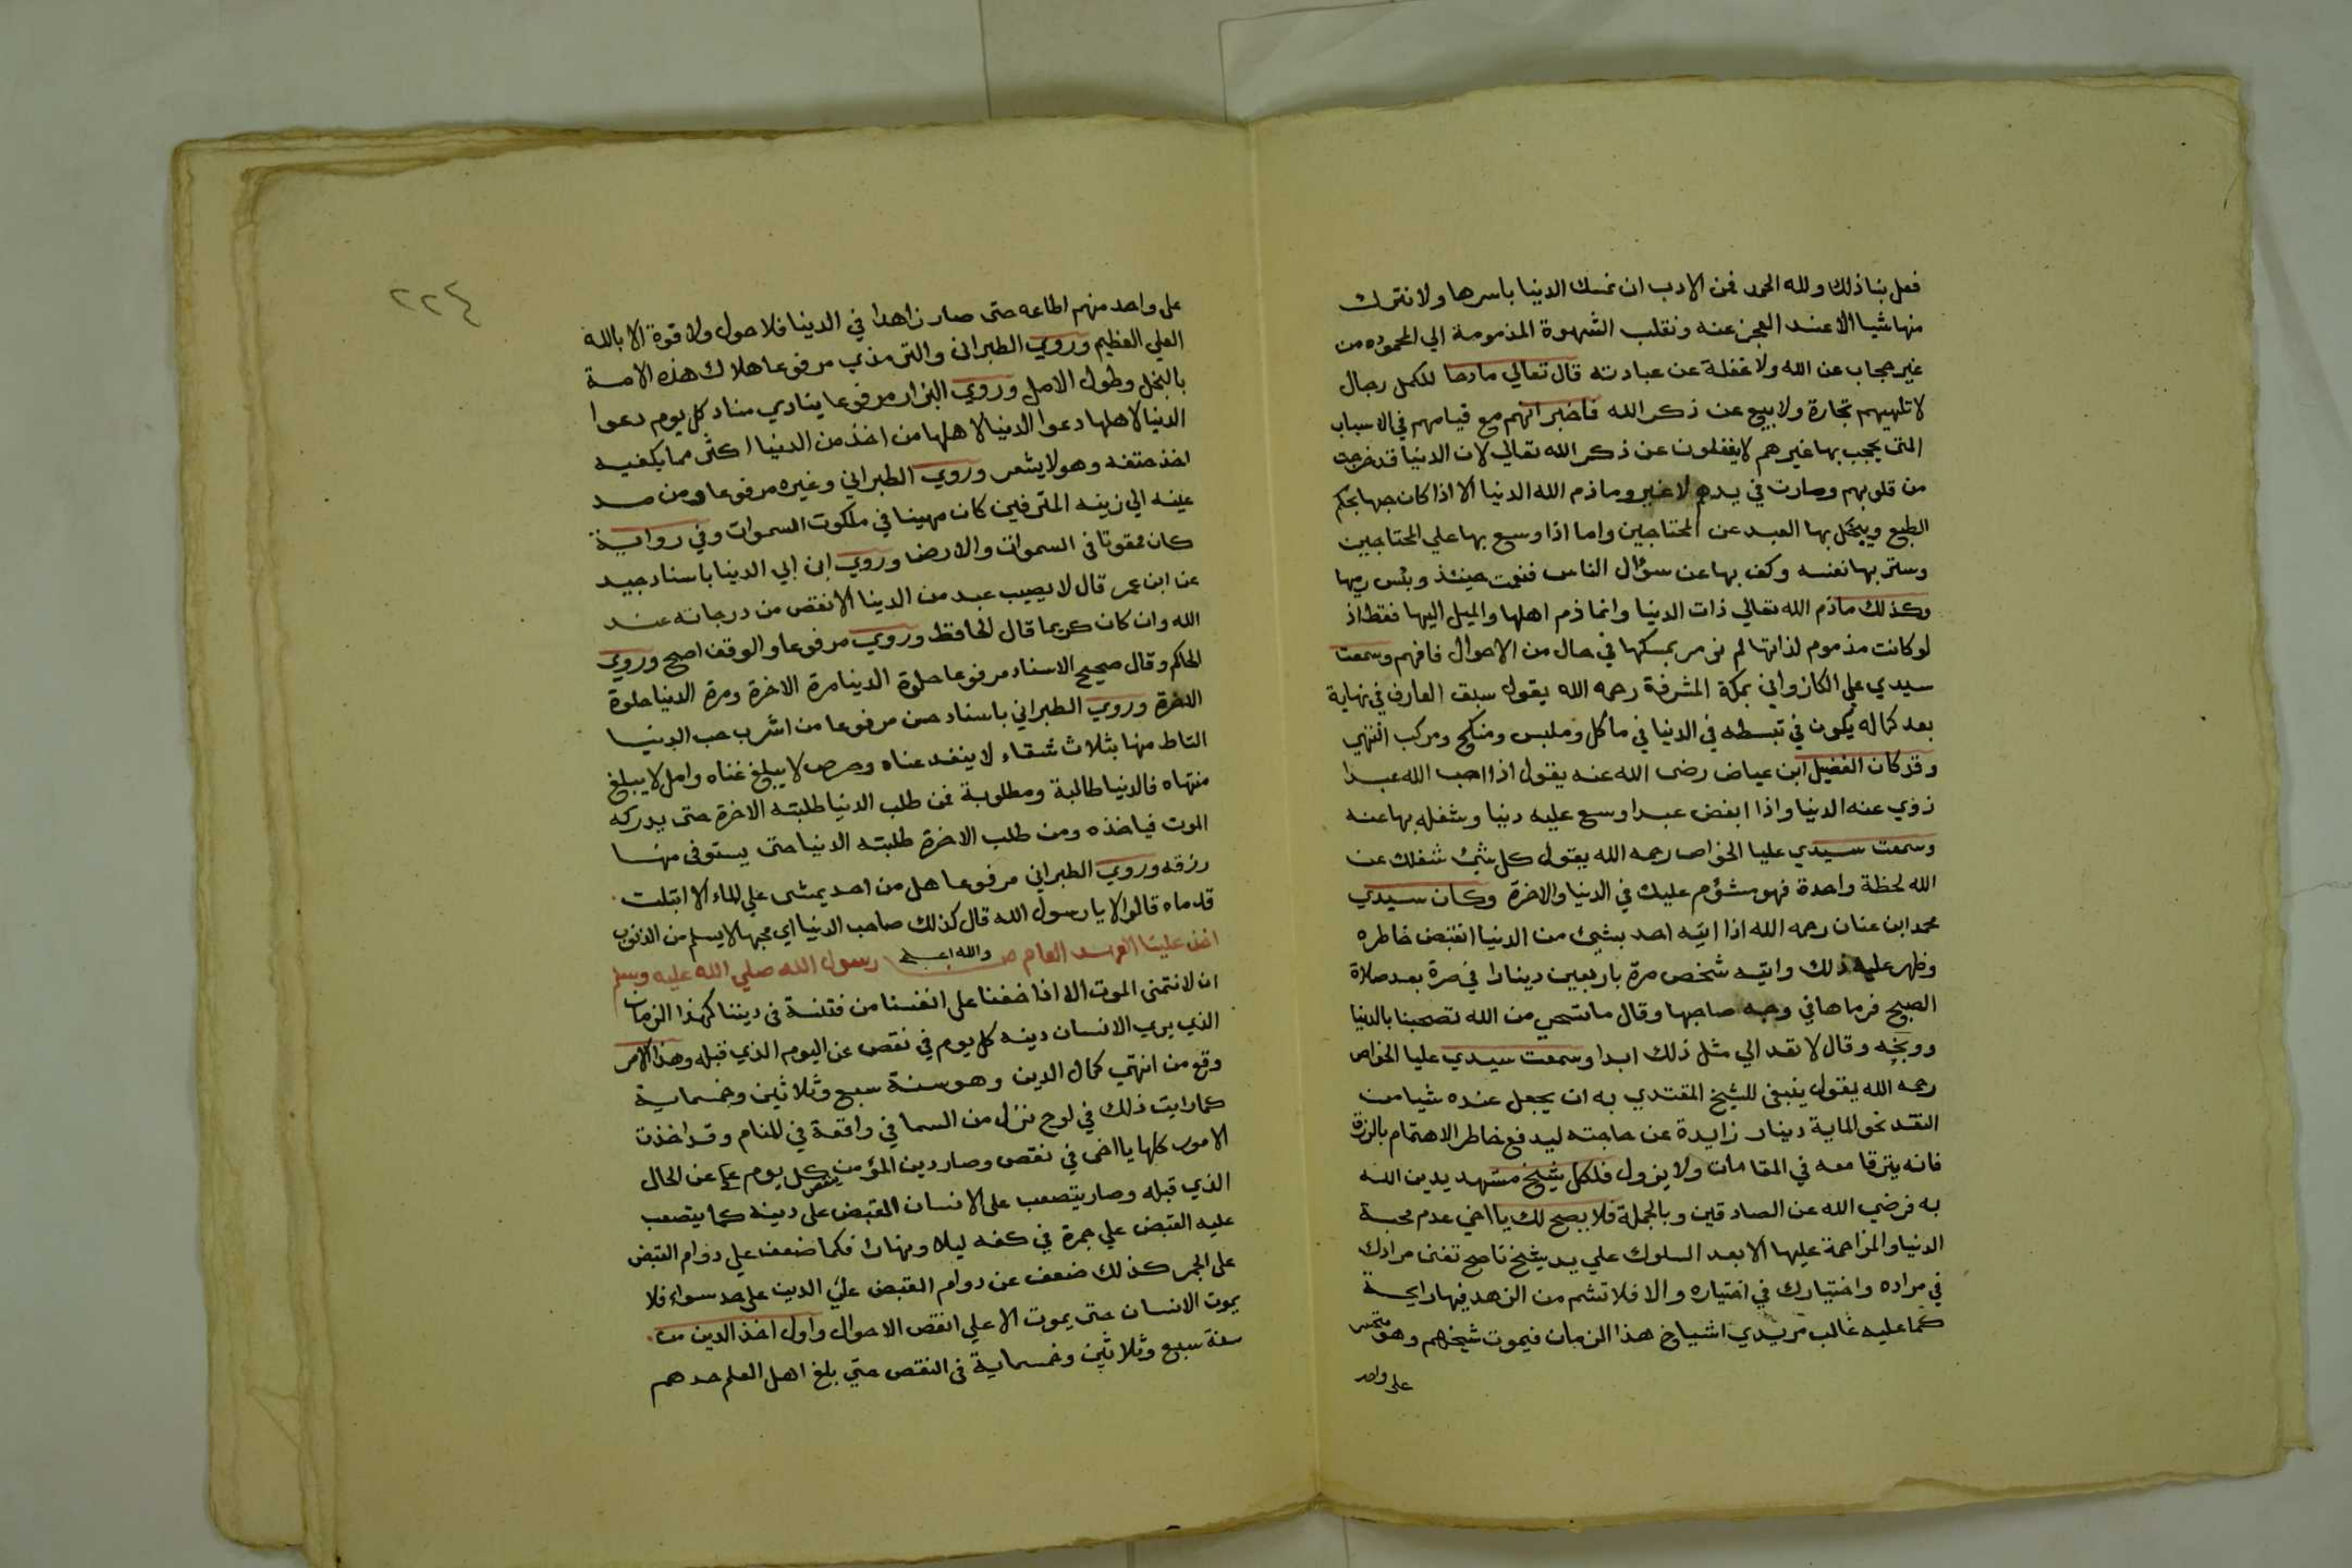 فعل بنا ذلك ولله الحمد فمن الادب ان نمسك الدنيا باسرها ولا نترك
منها شيا الا عند العجز عنه ونقلب الشهوة المذمومة الي المحموده من
غير حجاب عن الله ولا غفلة عن عبادته قال تعالي مادحا للكمل رجال
لا تلهيهم تجارة ولا بيع عن ذكر الله فاخبر انهم مع قيامهم في الاسباب
التى يحجب بها غيرهم لا يغفلون عن ذكر الله تعالي لان الدنيا قد خرجت
من قلوبهم وصارت في يدهم لا غير وما ذم الله الدنيا الا اذا كان حبها بحكم
الطبع ويبخل بها العبد عن المحتاجين واما اذا وسع بها علي المحتاجين
وستر بها نفسه وكف بها عن سؤال الناس فنعمت حينئذ وبئس ربها
وكذلك ما ذم الله تعالي ذات الدنيا وانما ذم اهلها والميل اليها فقط اذ
لو كانت مذموم لذاتها لم نومر بمسكها في حال من الاحوال فافهم وسمعت
سيدي علي الكازواني بمكة المشرفة رحمه الله يقول سبق العارف في نهاية
بعد كماله يكون في تبسطه في الدنيا في ماكل وملبس ومنكح ومركب انتهي
وقد كان الفضيل ابن عياض رضى الله عنه يقول اذا احب الله عبدا
زوي عنه الدنيا واذا ابغض عبدا وسع عليه دنيا وشغله بها عنه
وسمعت سيدي عليا الخواص رحمه الله يقول كل شئ شغلك عن
الله لحظة واحدة فهو مشؤم عليك في الدنيا والاخرة وكان سيدي
محمد ابن عنان رحمه الله اذا اتيه احد بشئ من الدنيا انقبض خاطره
وظهر عليه ذلك واتيه شخص مرة باربعين دينارا في صرة بعد صلاة
الصبح فرماها في وجه صاحبها وقال ما تستحي من الله تصبحنا بالدنيا
ووبخه وقال لا تعد الي مثل ذلك ابدا وسمعت سيدي عليا الخواص
رحمه الله يقول ينبغى للشيخ المقتدي به ان يجعل عنده شيا من
النقد نحو الماية دينار زايدة عن حاجته ليدفع خاطر الاهتمام بالرزق
فانه يترقا معه في المقامات ولا يزول فلكل شيخ مشهد يدين الله
به فرضي الله عن الصادقين وبالجملة فلا يصح لك يا اخي عدم محبة
الدنيا والمزاحمة عليها الا بعد السلوك علي يد شيخ ناصح تفنى مرادك
في مراده واختيارك في اختياره والا فلا تشم من الزهد فيها رايحة
كما عليه غالب مريدي اشياخ هذا الزمان فيموت شيخهم وهو متحسر
على واحد
٢٢٤
على واحد منهم اطاعه حتى صار زاهدا في الدنيا فلا حول ولا قوة الا بالله
العلي العظيم وروي الطبرانى والترمذي مرفوعا هلاك هذه الامة
بالبخل وطول الامل وروي البزار مرفوعا ينادي مناد كل يوم دعوا
الدنيا لاهلها دعوا الدنيا لاهلها من اخذ من الدنيا اكثر مما يكفيه
اخذ حتفه وهو لا يشعر وروي الطبراني وغيره مرفوعا ومن مد
عينه الي زينه المترفين كان مهينا في ملكوت السموات وفي رواية
كان ممقوتا فى السموات والارض وروي ابن ابي الدنيا باسناد جيد
عن ابن عمر قال لا يصيب عبد من الدنيا الا نقص من درجاته عند
الله وان كان كريما قال الحافظ وروي مرفوعا والوقف اصح وروي
الحاكم وقال صحيح الاسناد مرفوعا حلوة الدنيا مرة الاخرة ومرة الدنيا حلوة
الاخرة وروي الطبراني باسناد حسن مرفوعا من اشرب حب الدنيا
التاط منها بثلاث شقاء لا ينفد عناه وحرص لا يبلغ غناه وامل لا يبلغ
منتهاه فالدنيا طالبة ومطلوبة فمن طلب الدنيا طلبته الاخرة حتى يدركه
الموت فياخذه ومن طلب الاخرة طلبته الدنيا حتى يستوفى منها
رزقه وروي الطبراني مرفوعا هل من احد يمشى علي الماء الا ابتلت
قدماه قالوا لا يا رسول الله قال كذلك صاحب الدنيا اي محبها لا يسلم من الذنوب
والله اعلم
اخذ علينا العهد العام من رسول الله صلي الله عليه وسلم
ان لا نتمنى الموت الا اذا خفنا على انفسنا من فتنة فى ديننا كهذا الزمان
الذي يري الانسان دينه كل يوم في نقص عن اليوم الذي قبله وهذا الامر
وقع من انتهي كمال الدين وهو سنة سبع وثلاثين وخمسماية
كما رايت ذلك في لوح نزل من السما في واقعة في المنام وقد اخذت
الامور كلها يا اخى في نقص وصار دين المؤمن ينقص كل يوم عن الحال
الذي قبله وصار يتصعب على الانسان القبض على دينه كما يتصعب
عليه القبض علي جمرة في كفه ليلا ونهارا فكما ضعف علي دوام القبض
على الجمر كذلك ضعف عن دوام القبض علي الدين على حد سواء فلا
يموت الانسان حتى يموت الا علي انقص الاحوال واول اخذ الدين من
سنة سبع وثلاثين وخمسماية فى النقص حتي بلغ اهل العلم حدهم